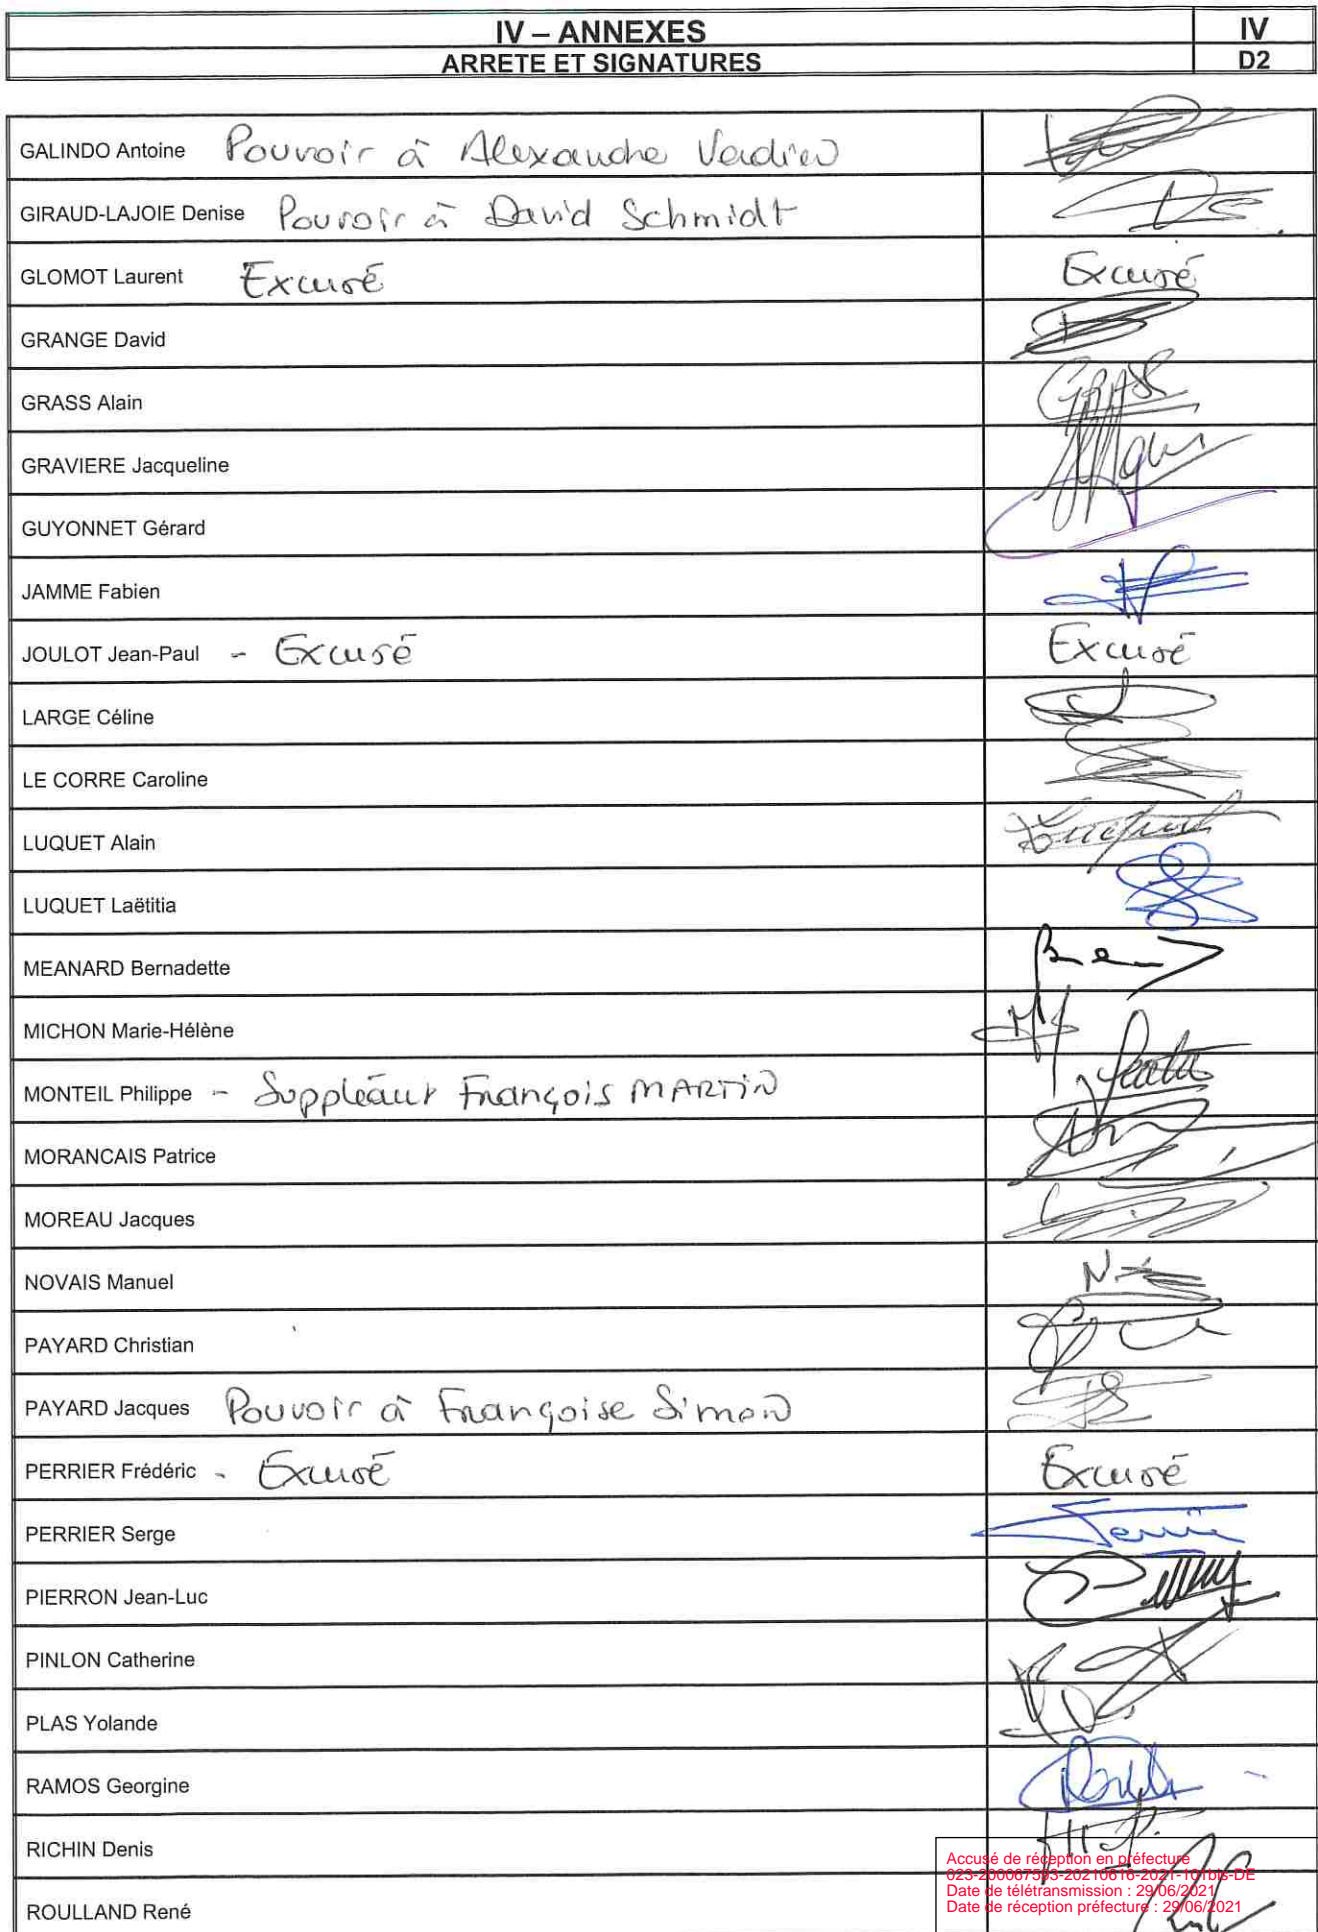 IV – ANNEXES IV
ARRETE ET SIGNATURES D2
GALINDO Antoine Pouvoir à Alexandre Verdier
GIRAUD-LAJOIE Denise Pouvoir à David Schmidt
GLOMOT Laurent Excusé Excusé
GRANGE David
GRASS Alain GRASS
GRAVIERE Jacqueline
GUYONNET Gérard
JAMME Fabien
JOULOT Jean-Paul - Excusé Excusé
LARGE Céline
LE CORRE Caroline
LUQUET Alain Luquet
LUQUET Laëtitia
MEANARD Bernadette
MICHON Marie-Hélène
MONTEIL Philippe - Suppléant François MARTIN
MORANCAIS Patrice
MOREAU Jacques
NOVAIS Manuel
PAYARD Christian
PAYARD Jacques Pouvoir à Françoise Simon
PERRIER Frédéric - Excusé Excusé
PERRIER Serge
PIERRON Jean-Luc
PINLON Catherine
PLAS Yolande
RAMOS Georgine
RICHIN Denis
Accusé de réception en préfecture
023-200067593-20210616-2021-101bis-DE
Date de télétransmission : 29/06/2021
Date de réception préfecture : 29/06/2021
ROULLAND René